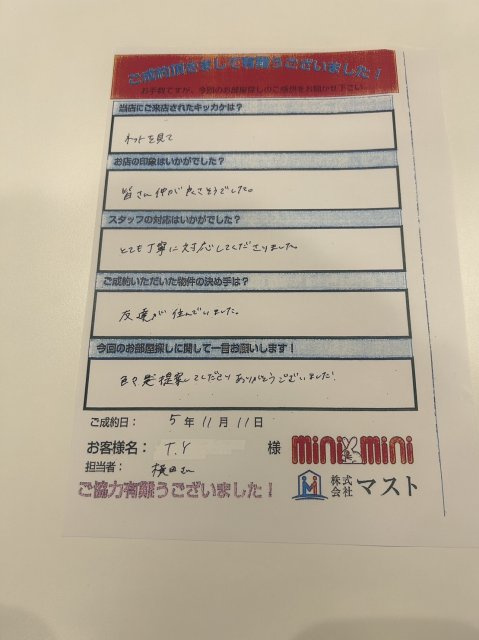 ご成約頂きまして有難うございました！
お手数ですが、今回のお部屋探しのご感想をお聞かせ下さい
当店にご来店されたキッカケは？
ネットを見て
お店の印象はいかがでした？
皆さん仲が良さそうでした。
スタッフの対応はいかがでした？
とても丁寧に対応してくださりました。
ご成約いただいた物件の決め手は？
友達が住んでいました。
今回のお部屋探しに関して一言お願いします！
色々と提案してくださりありがとうございました!
ご成約日： 5年11月11日
お客様名： T.Y 様
担当者： 横田さん
ご協力有難うございました！
mini mini
株式会社マスト